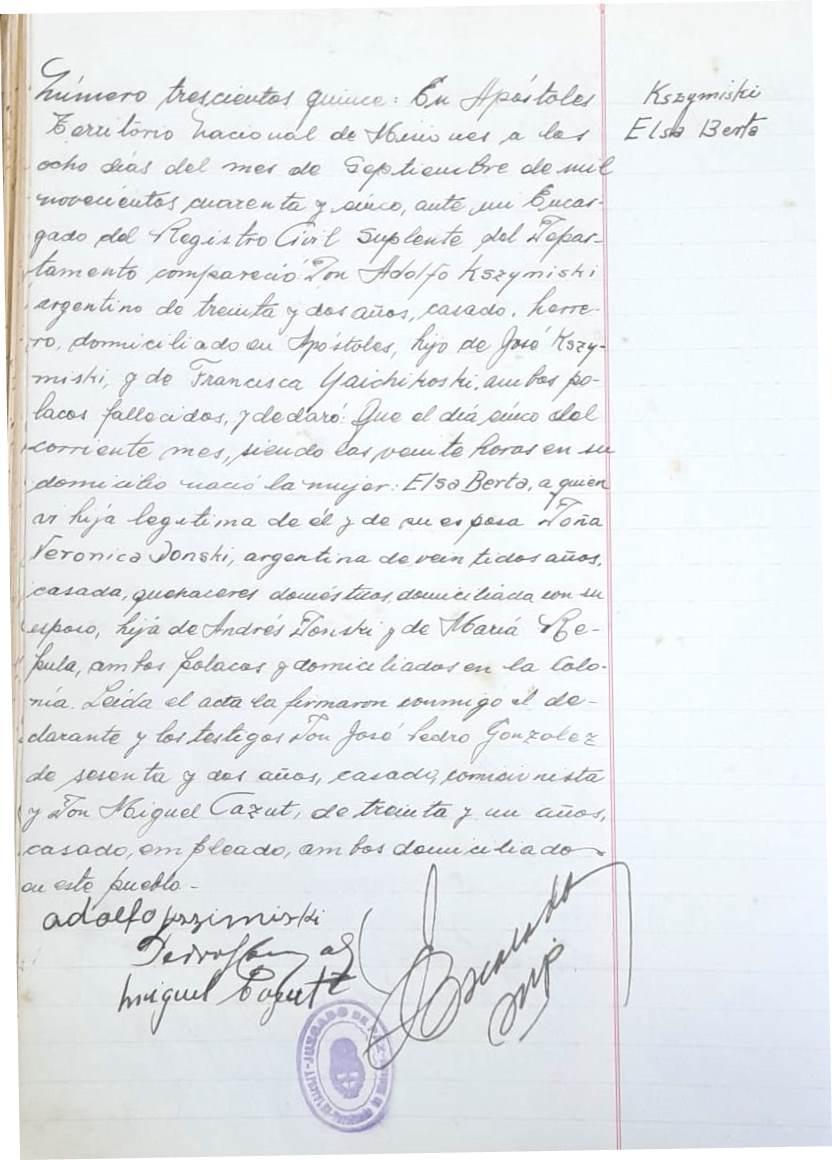 Número trescientos quince: En Apóstoles
Territorio Nacional de Misiones a los
ocho días del mes de Septiembre de mil
novecientos cuarenta y cinco, ante mi Encar-
gado del Registro Civil Suplente del Depar-
tamento compareció Don Adolfo Kszymiski
argentino de treinta y dos años, casado, herre-
ro, domiciliado en Apóstoles, hijo de José Kszy-
miski, y de Francisca Yaichikoski, ambos po-
lacos fallecidos, y declaró: Que el día cinco del
corriente mes, siendo las veinte horas en su
domicilio nació la mujer: Elsa Berta, a quien
vi hija legitima de él y de su esposa Doña
Veronica Donski, argentina de veintidos años,
casada, quehaceres domésticos, domiciliada con su
esposo, hija de Andrés Donski y de María Re-
pula, ambos polacos y domiciliados en la Colo-
nia. Leída el acta la firmaron conmigo el de-
clarante y los testigos Don José Pedro Gonzalez
de sesenta y dos años, casado, comisionista
y Don Miguel Cazut, de treinta y un años,
casado, empleado, ambos domiciliados
en este pueblo-
Kszymiski
Elsa Berta
adolfo
miguel
JUZGADO DE PAZ